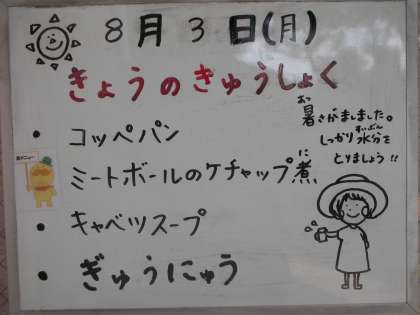 8月3日(月)
きょうのきゅうしょく
暑さがましました。
しっかり水分を
とりましょう!!
• コッペパン
ミートボールのケチャップ煮
• キャベツスープ
• ぎゅうにゅう